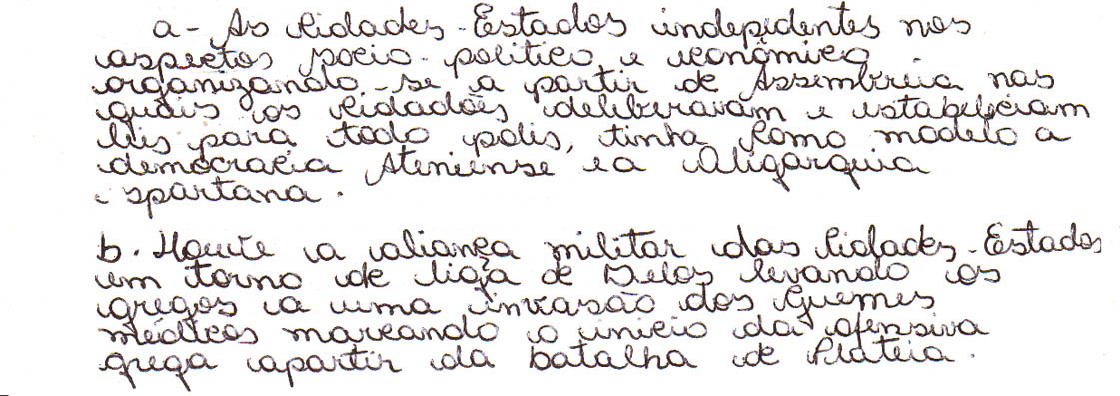 a - As Cidades-Estados indepidentes nos
aspectos socio-político e econômico
organizando-se a partir de Assembréia nas
quais os cidadões deliberavam e estabeleciam
leis para todo polis, tinha como modelo a
democracia Ateniense e a Oligarquia
espartana.
b. Houve a aliança militar das Cidades-Estados
em torno de liga de Delos levando os
gregos a uma invasão dos
médicos marcando o início da ofensiva
grega apartir da batalha de Plateia.